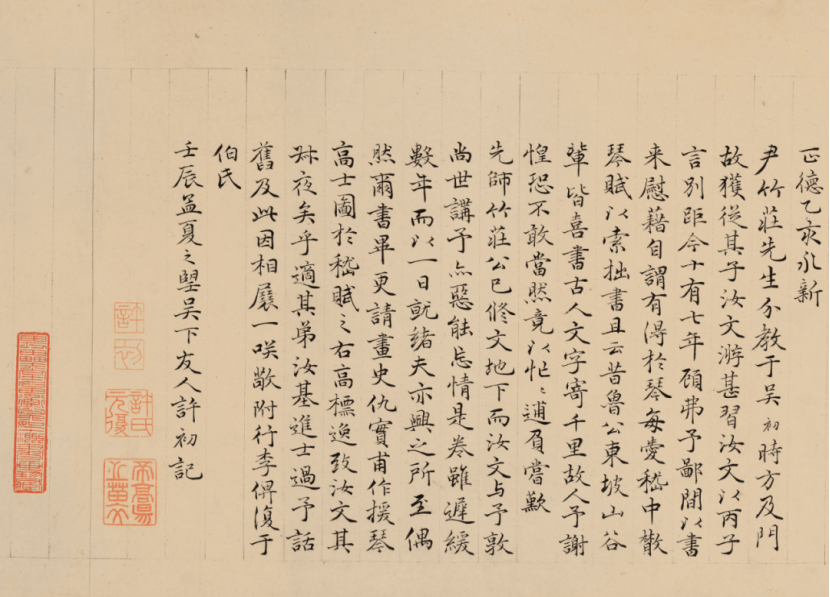 正德乙亥永新
尹竹莊先生分教于吳初時方及門
故獲從其子汝文游甚習汝文以丙子
言別距今十有七年顧弗予鄙間以書
来慰藉自謂有得於琴每愛嵇中散
琴賦以索拙書且云昔魯公東坡山谷
輩皆喜書古人文字寄千里故人予謝
惶恐不敢當然竟以忙〻逋負嘗歎
先師竹莊公已修文地下而汝文与予敦
尚世講予亦惡能忘情是卷雖遲緩
數年而以一日就緒夫亦興之所至偶
然爾書畢更請畫史仇實甫作援琴
高士圖於嵇賦之右高標逸致汝文其
夜矣乎適其弟汝基進士過予話
舊及此因相展一咲敬附行李俾復于
伯氏
壬辰孟夏之望吳下友人許初記
許初
許氏元復